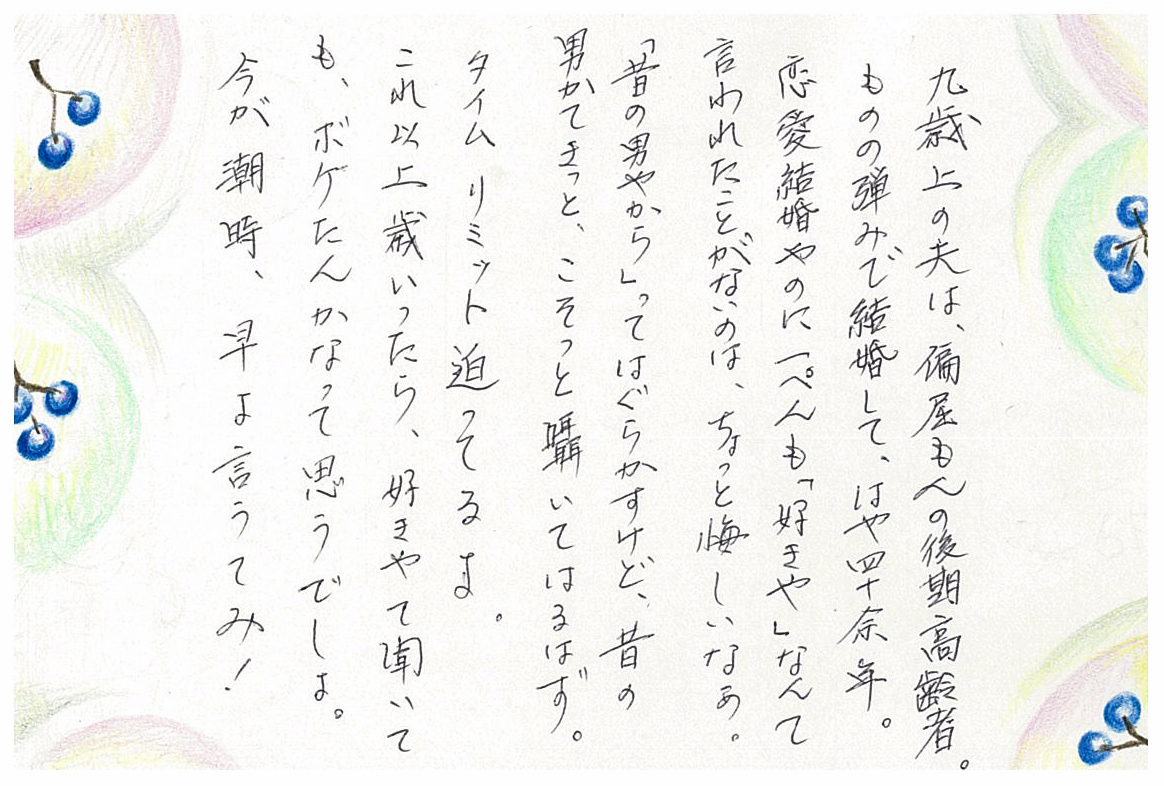 九歳上の夫は、偏屈もんの後期高齢者。
ものの弾みで結婚して、はや四十余年。
恋愛結婚やのに一ぺんも「好きや」なんて
言われたことがないのは、ちょっと悔しいなあ。
「昔の男やから」ってはぐらかすけど、昔の
男かてきっと、こそっと囁いてはるはず。
タイムリミット迫ってるよ。
これ以上歳いったら、好きやて聞いて
も、ボケたんかなって思うでしょ。
今が潮時、早よ言うてみ！